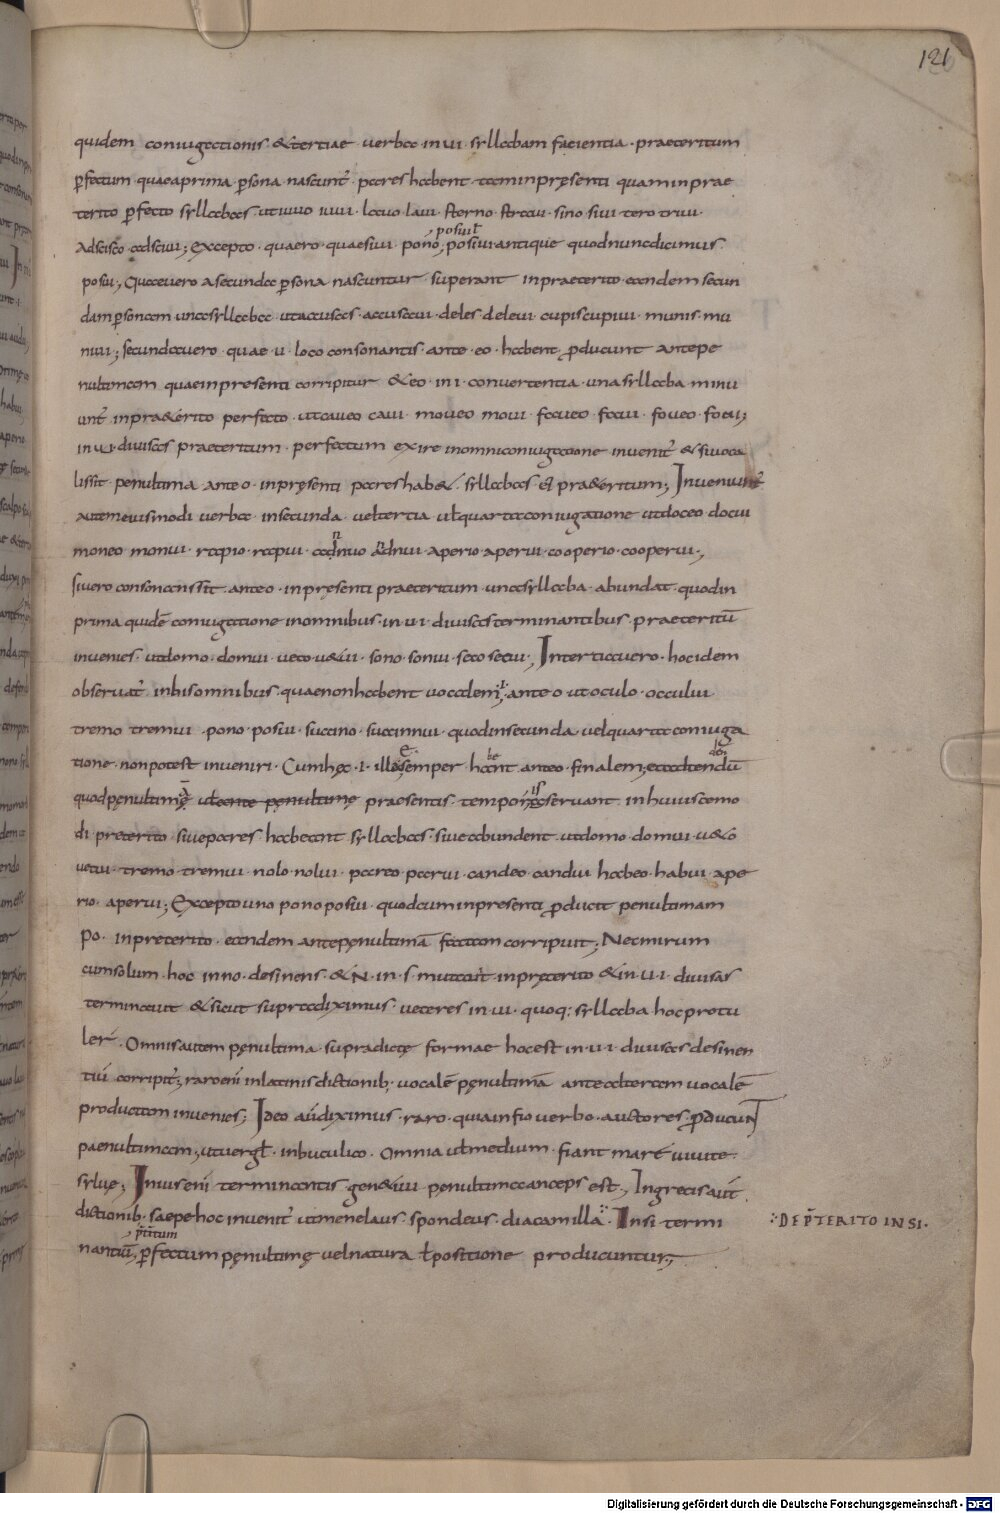 121
quidem coniugationis & tertiae verba in vi syllabam facientia · praeteritum
p̄fectum quae a prima p̄sona nascunt̄ · pares habent tam in pręsenti quam in prae
terito p̄fecto syllabas · ut iuuo iuui · lauo laui · sterno straui · sino siui · tero triui ·
Adscisco · adsciui ; excepto · quaero · quaesiui · pono ; posiui antique quod nunc dicimus
posiuł
posui ; Quae uero a secunda p̄sona nascuntur · superant in praeterito eandem secun
dam p̄sonam una syllaba · ut accusas · accusaui · deles deleui · cupis cupiui · munis mu
niui ; secunda uero · quae · u · loco consonantis · ante · eo · habent p̄ducunt antepe
nultimam quae in presenti corripitur & eo · in i · conuertentia · una syllaba minu
unt̄ in pra&erito perfecto · ut caueo caui · moueo moui · faueo · faui · foueo · foui ;
in ui · diuisas praeteritum · perfectum exire in omni coniugatione inuenit̄ & si uoca
lis sit penultima ante o · in pręsenti pares hab& · syllabas & pra&eritum ; Inueniunt̄
autem eiusmodi uerba in secunda uel tertia uł quarta coniugatione ut doceo docui
moneo monui · rapio · rapui · adnuo adnui · aperio aperui · cooperio · cooperui ·,
si uero consonans sit ante o · in pręsenti praeteritum · una syllaba · abundat · quod in
prima quidē coniugatione in omnibus · in u i · diuisas terminantibus praeteritū
inuenies · ut domo · domui · ueto u&ui · sono · sonui · seco secui · In tertia uero · hoc idem
obseruat̄ in his omnibus · quae non habent uocalem · l · ante o ut oculo · occului
tremo tremui · pono · posui · succino · succinui · quod in secunda uel quarta coniuga
tione · non potest inueniri · Cum hęc · i · illę semper habent ante o · finalem ; et attendendū
quod pęnultimę uł ante pęnultimę praesentis temporis seruant in huiuscemo
di preterito siue pares habeant syllabas · siue abundent ut domo domui · u&o
uetui · tremo · tremui · nolo · nolui · pareo parui · candeo · candui · habeo · habui · ape
rio · aperui ; Excepto uno pono posui · quod cum in presenti p̄ducit penultimam
po · in preterito · eandem antepęnultimā factam corripuit ; Nec mirum
cum solum hoc in no · desinens · & N · in · s · mutauit in pręterito & in · u · i · diuisas
terminauit & sicut supra diximus · ueteres in · ui · quoq; syllaba hoc protu
ler̄ · Omnis autem pęnultima · supradictę formae hoc est in · u · i · diuisas desinen
tiū corripit̄ ; raro enī in latinis dictionib; uocalē pęnultimā ante alteram uocalē
productam inuenies ; Ideo aū diximus · raro · quia in fio uerbo · auctores p̄ducunt
paenultimam ; ut uergł · in buculico · Omnia uł medium · fiant mare uiuite
syluę ; In ius enī terminantis gen&iui penultima anceps est ; In grecis aut̄
dictionib; saepe hoc inuenit̄ ut menelaus · spondeus · diacamilla · In si termi
nantiū ; p̄fectum pęnultimę uel natura ł positione producuntur ;
p̄titum
DE P̄TERITO IN SI ·
Digitalisierung gefördert durch die Deutsche Forschungsgemeinschaft - DFG